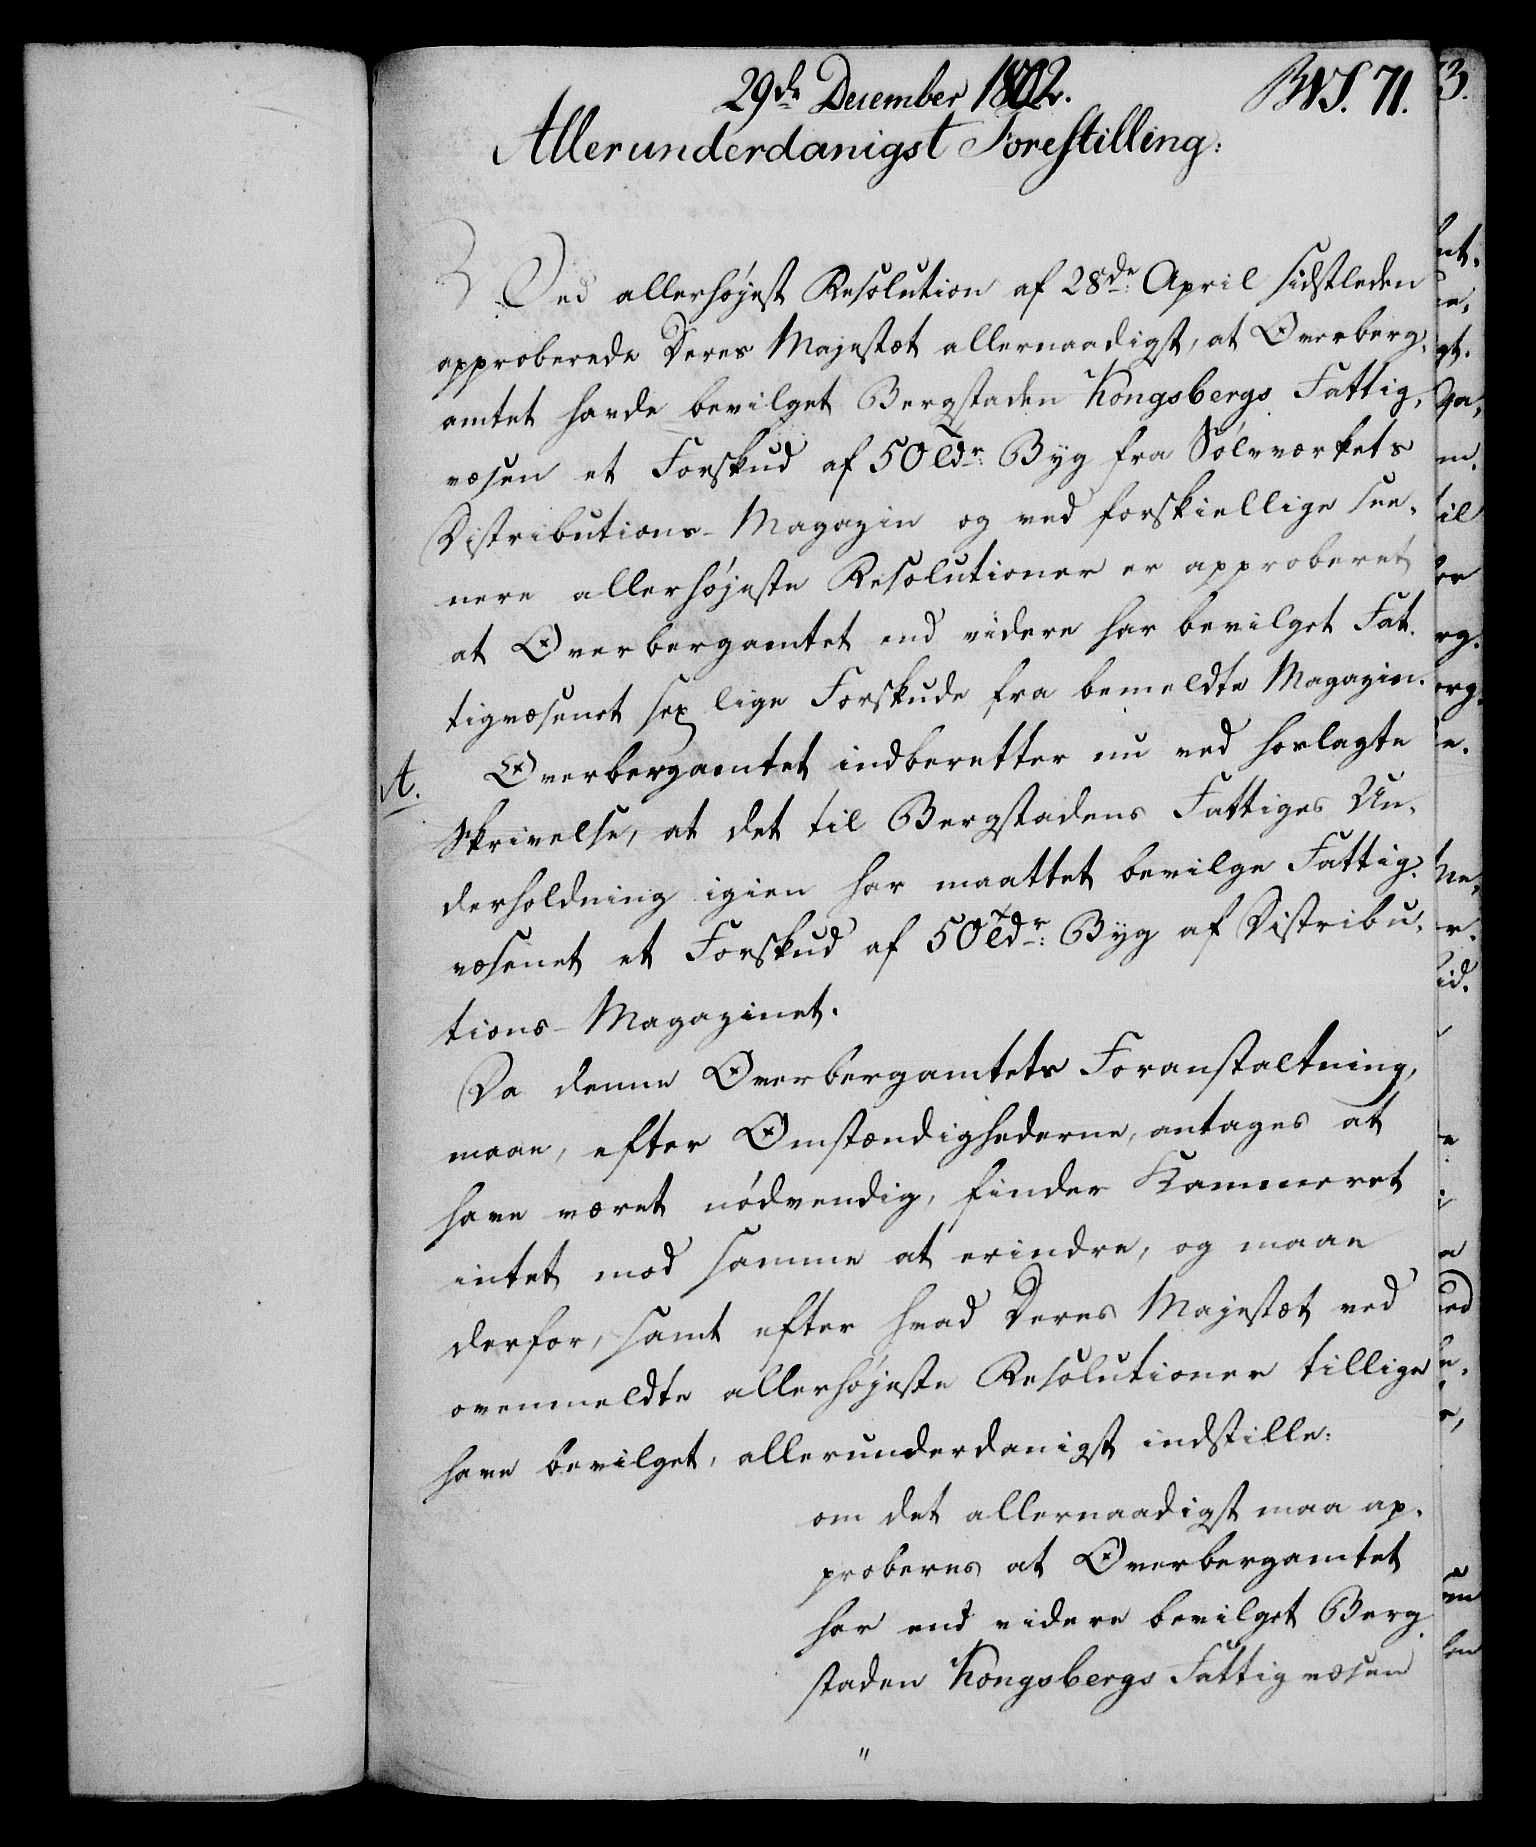 29de December 1802. BWS. 71.
Allerunderdanigst Forestilling:
Ved allerhøjest Resolution af 28de April sidstleden
approberede Deres Majestæt allernaadigst, at Overberg-
amtet havde bevilget Bergstaden Kongsbergs Fattig-
væsen et Forskud af 50 Tdr: Byg fra Sølvværkets
Distributions-Magazin og ved forskiellige see-
nere allerhøjeste Resolutioner er approberet
at Overbergamtet end videre har bevilget Fat-
tigvæsenet sex lige Forskude fra bemeldte Magazin.
A. Overbergamtet indberetter nu ved hoslagte
Skrivelse, at det til Bergstadens Fattiges Un-
derholdning igien har maattet bevilge Fattig-
væsenet et Forskud af 50 Tdr: Byg af Distribu-
tions-Magazinet.
Da denne Overbergamtets Foranstaltning,
maae, efter Omstændighederne, antages at
have været nødvendig, finder Kammeret
intet mod samme at erindre, og maae
derfor, samt efter hvad Deres Majestæt ved
ovenmeldte allerhøjeste Resolutioner tillige
have bevilget, allerunderdanigst indstille:
om det allernaadigst maa ap-
proberes at Overbergamtet
har end videre bevilget Berg-
staden Kongsbergs Fattigvæsen
"